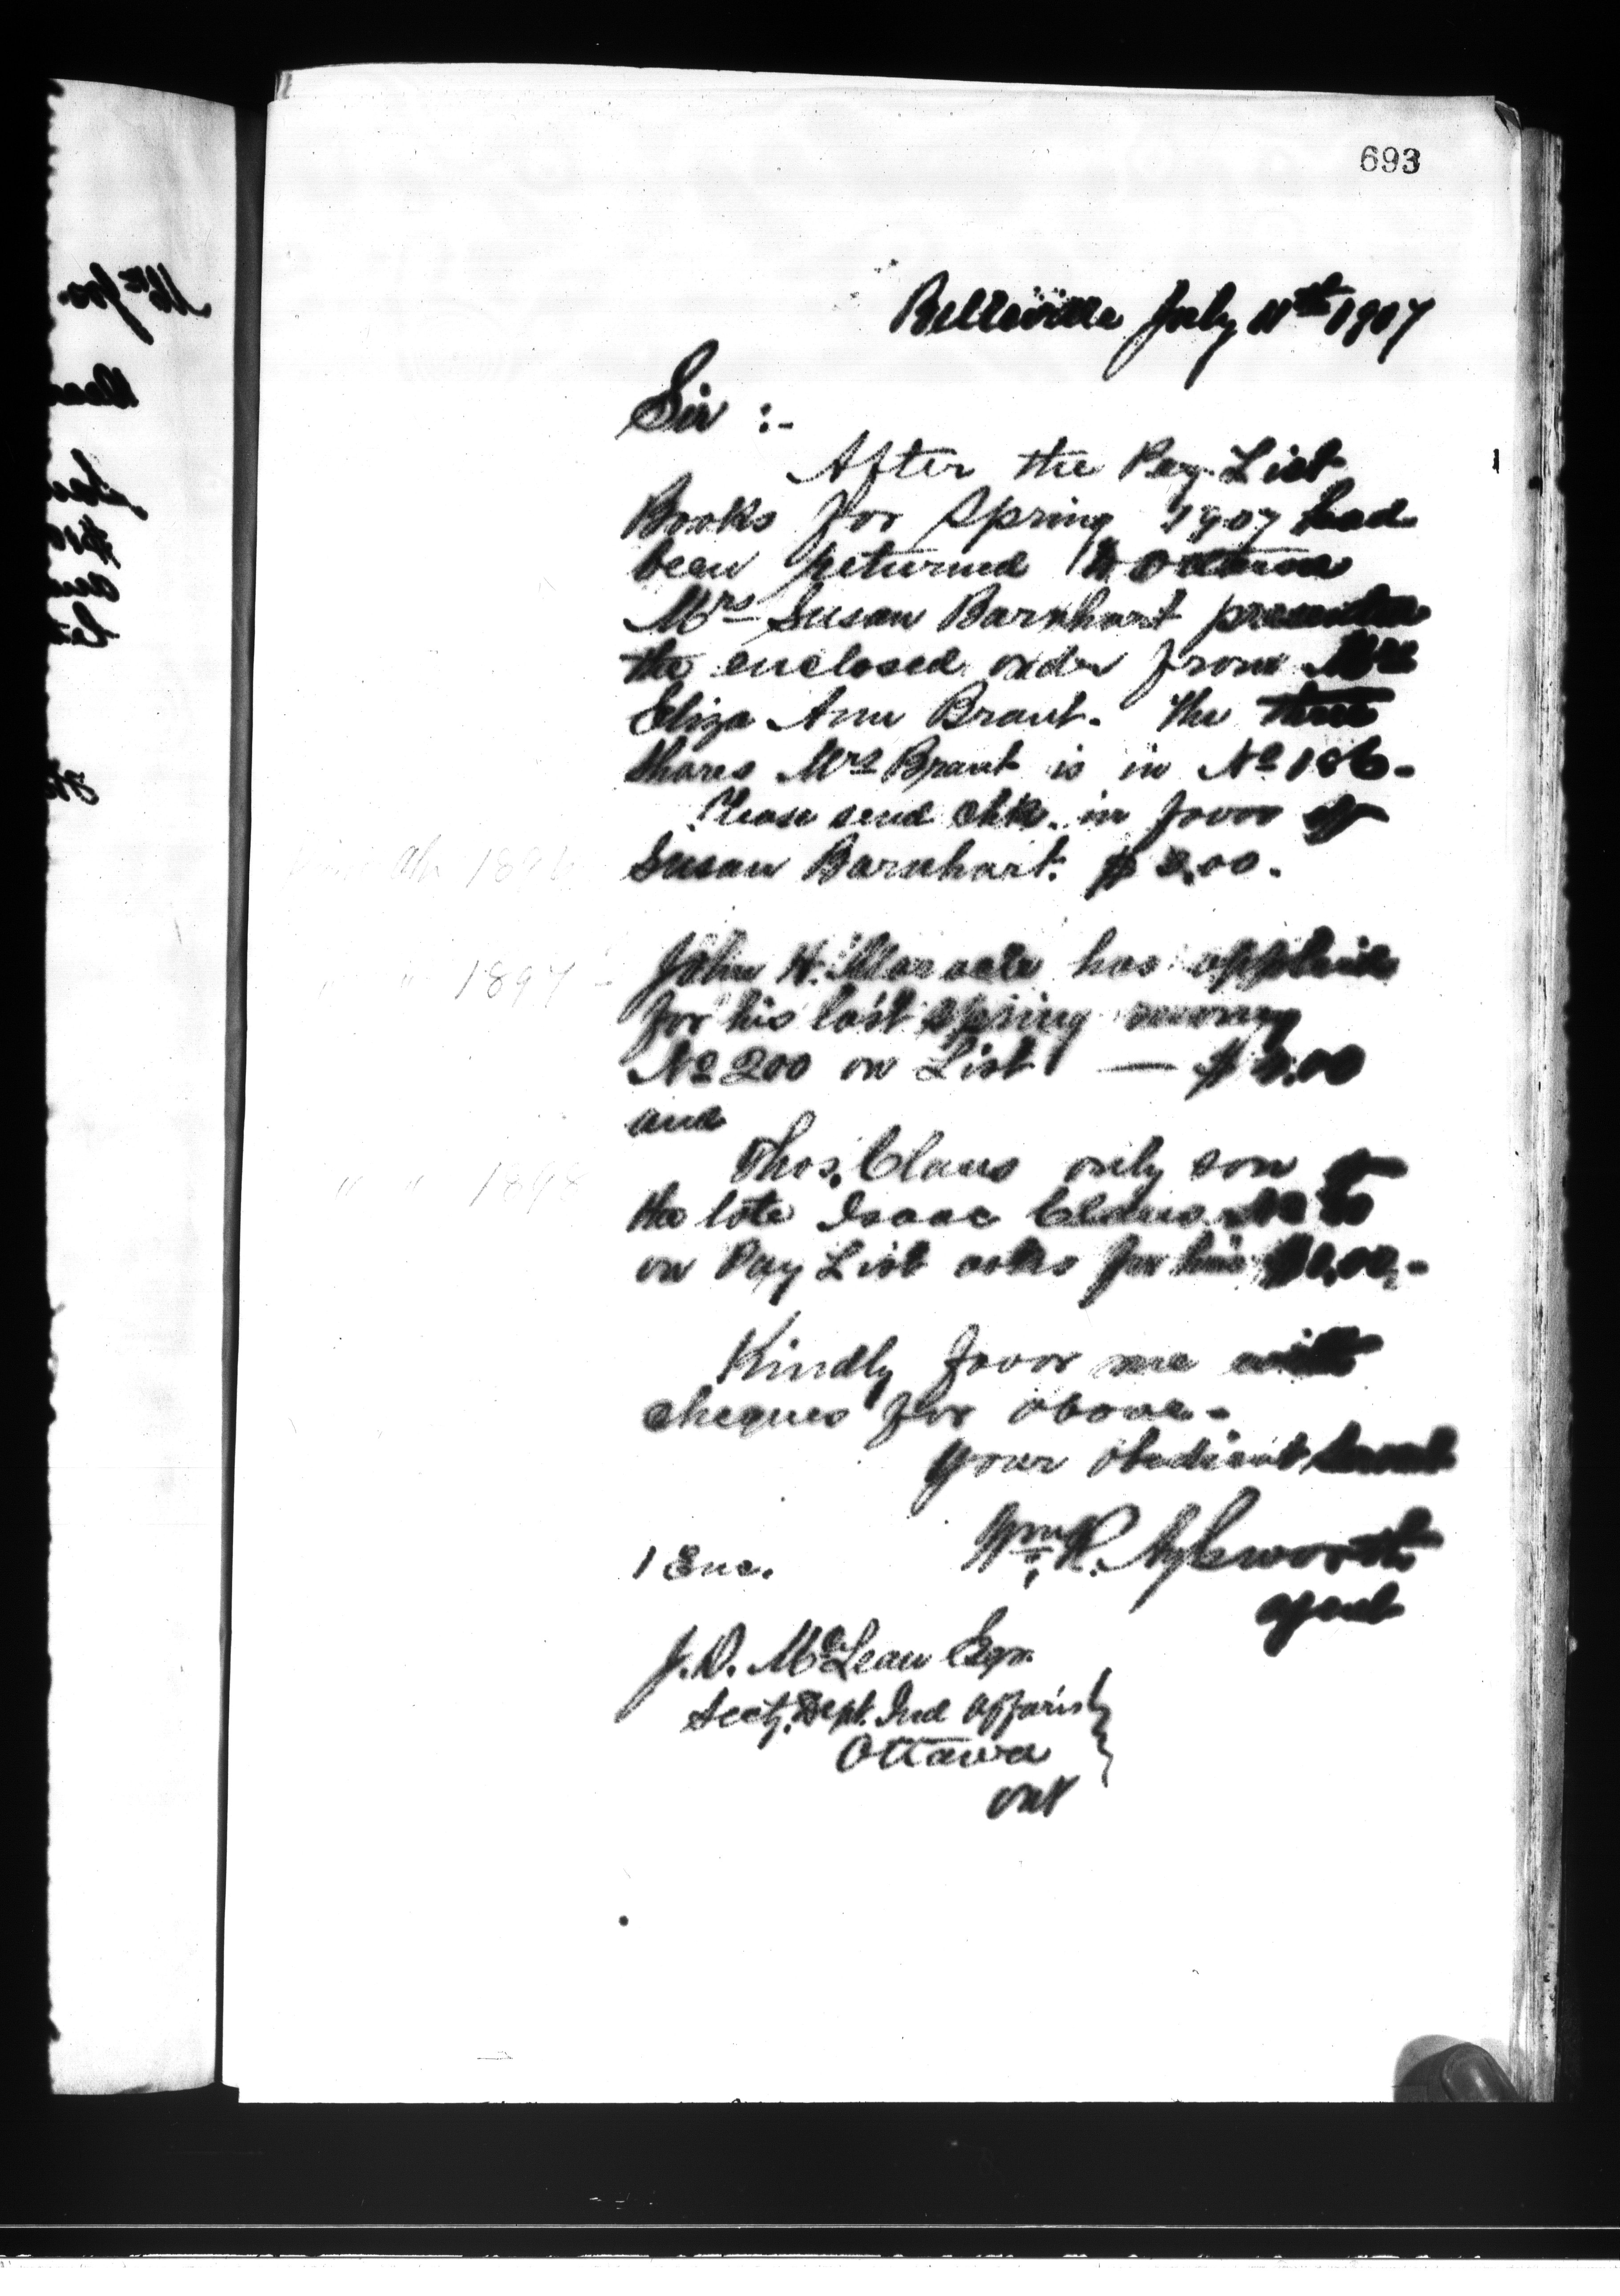 693
Belleville July 11th 1907
Sir :-
After the Pay List
Books for Spring 1907 had
been returned to Ottawa
Mrs Susan Barnhart presented
the enclosed order from Mrs
Eliza Ann Brant. The three
shares Mrs Brant is in No 186-
Please send chk. in favor of
Susan Barnhart. $3.00.
John H. Maracle has applied
for his last spring money
No 200 on List —
and
Thos. Claus only son of
the late Isaac Claus
on Pay List asks for his
Kindly favor me with
cheques for above-
Your obedient Servant
Wm. R. Aylsworth
agent
1 Enc.
J. D. McLean Esqr.
Secty. Dept. Ind Affairs
Ottawa
Ont
1897
" " 1898